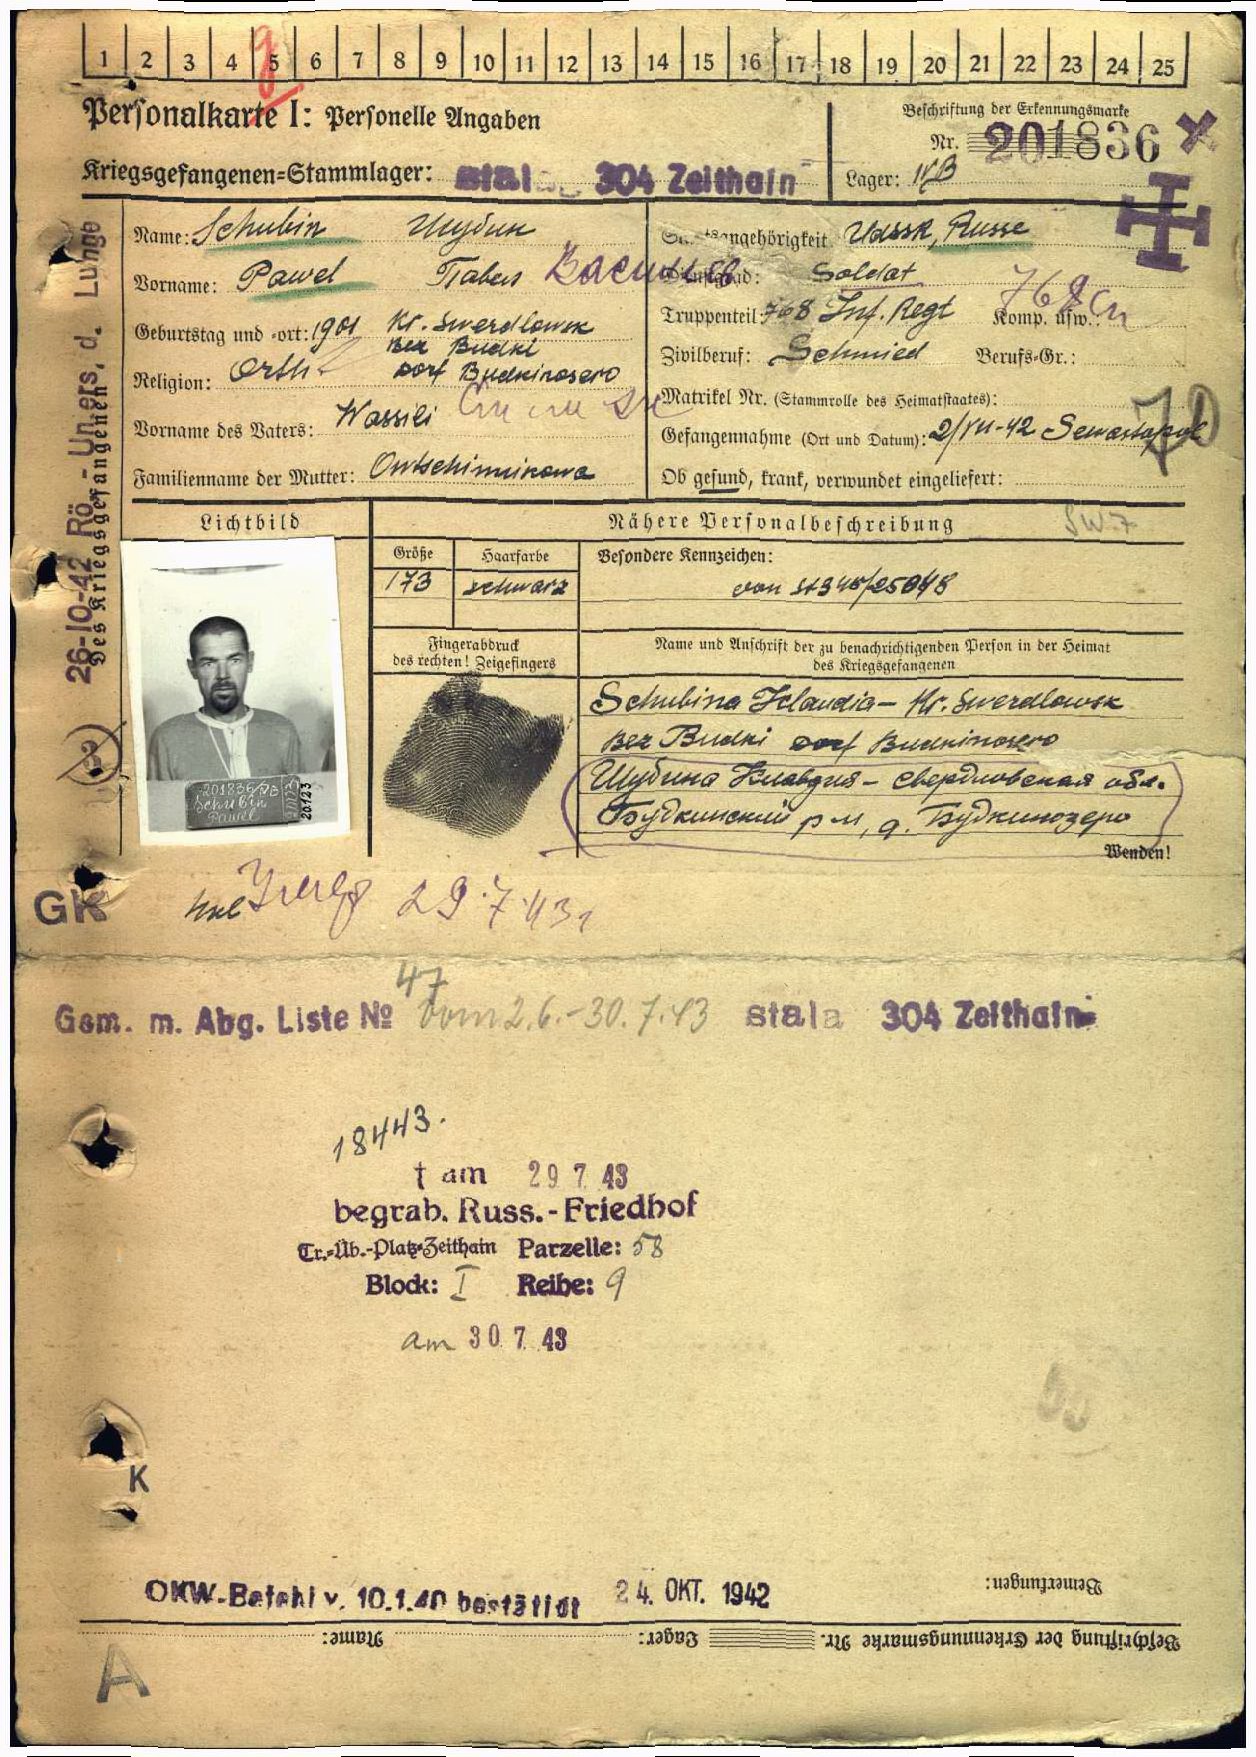 1 2 3 4 5 6 7 8 9 10 11 12 13 14 15 16 17 18 19 20 21 22 23 24 25
Personalkarte I: Personelle Angaben
Beschriftung der Erkennungsmarke
Nr. 201836
Kriegsgefangenen-Stammlager: 304 Zeithain
Lager: IVB
Name: Schubin Шубин
Staatsangehörigkeit Udssr, Russe
Vorname: Pawel Павел
Dienstgrad: Soldat
Truppenteil 768 Inf. Regt Komp. usw.:
Geburtstag und -ort: 1901 Kr. Swerdlowsk
Bez Budki
Zivilberuf: Schmied Berufs-Gr.:
Religion: Orth Dorf Budkinosero
Matrikel Nr. (Stammrolle des Heimatstaates):
Vorname des Vaters: Wassili
Gefangennahme (Ort und Datum): 2/VII-42 Sewastopol
Familienname der Mutter:
Ob gesund, krank, verwundet eingeliefert:
26-10-42 Rö - Unters. d. Lunge
des Kriegsgefangenen
Lichtbild
Nähere Personalbeschreibung
Größe Haarfarbe Besondere Kennzeichen:
173 schwarz
Fingerabdruck
des rechten! Zeigefingers
Name und Anschrift der zu benachrichtigenden Person in der Heimat
des Kriegsgefangenen
Schubina Klaudia - Kr. Swerdlowsk
Bez Budki Dorf Budkinosero
Шубина Клавдия - Свердловская обл.
Будкинский р-н, д. Будкинозеро
201836 IVB
Schubin
Pawel
20123
Wenden!
GK
29.7.43
47
Gem. m. Abg. Liste № vom 2.6.-30.7.43 stala 304 Zeithain
18443.
† am 29 7. 43
begrab. Russ.-Friedhof
Tr.-Üb.-Platz Zeithain Parzelle: 58
Block: I Reihe: 9
am 30 7. 43
K
OKW-Befehl v. 10.1.40 bestätigt 24. OKT. 1942
Bemerkungen:
Beschriftung der Erkennungsmarke Nr. Lager: Name:
A